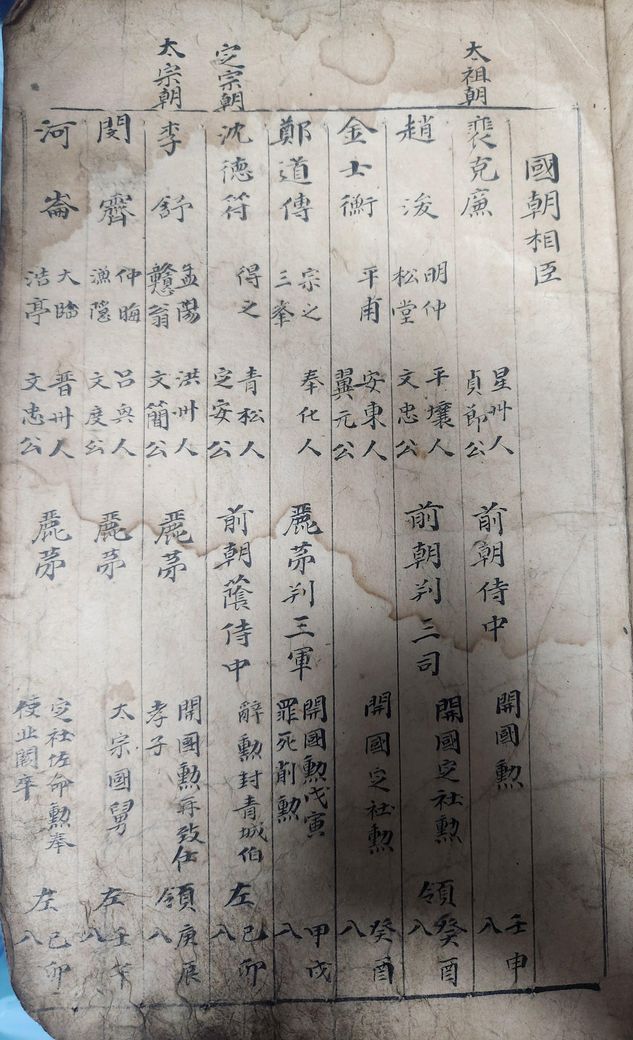 國朝相臣
太祖朝
裴克廉 星州人 貞節公 前朝侍中 開國勲 壬申入
趙浚 明仲 松堂 平壤人 文忠公 前朝判三司 開國定社勲 領 癸酉入
金士衡 平甫 安東人 翼元公 開國定社勲 癸酉入
鄭道傳 宗之 三峯 奉化人 麗苐判三軍 開國勲戊寅 罪死削勲 甲戌入
定宗朝
沈德符 得之 青松人 定安公 前朝蔭侍中 辭勲封青城伯 左 己卯入
太宗朝
李舒 孟陽 戇翁 洪州人 文簡公 麗苐 開國勲再致仕 孝子 領 庚辰入
閔霽 仲晦 漁隱 呂興人 文度公 麗苐 太宗國舅 左 壬午入
河崙 大臨 浩亭 晋州人 文忠公 麗苐 定社佐命勲奉 使北關卒 左 己卯入